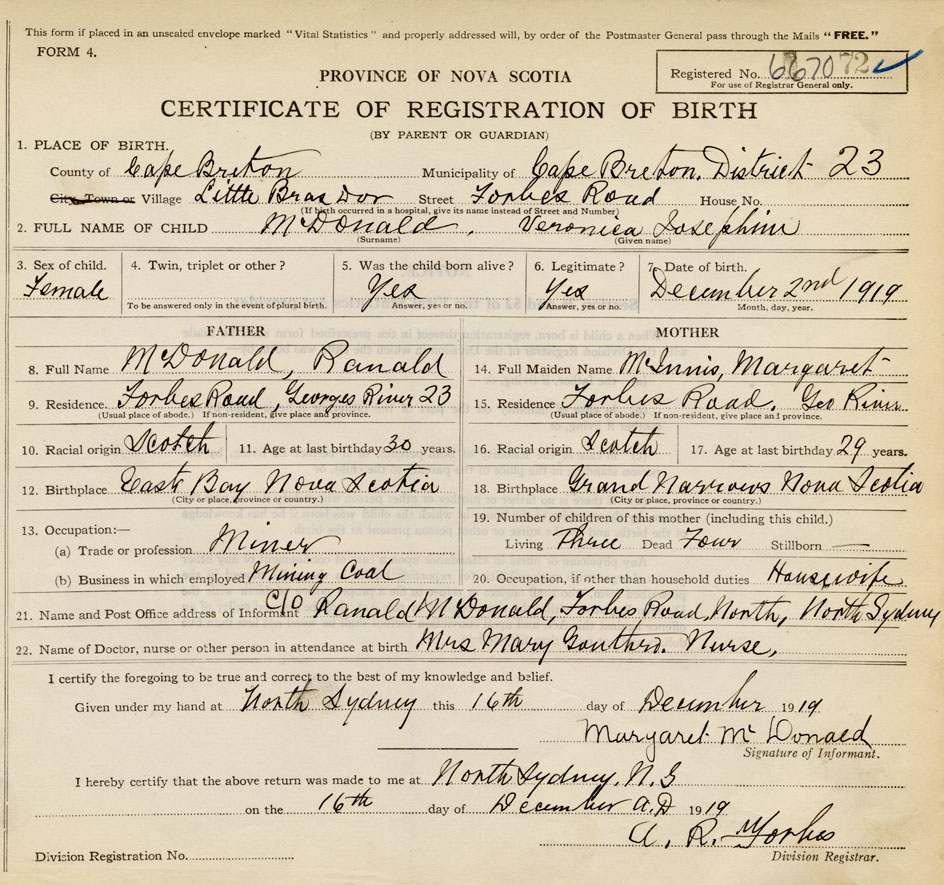 This form if placed in an unsealed envelope marked "Vital Statistics" and properly addressed will, by order of the Postmaster General pass through the Mails "FREE."
FORM 4.
PROVINCE OF NOVA SCOTIA
Registered No. 667072
For use of Registrar General only.
CERTIFICATE OF REGISTRATION OF BIRTH
(BY PARENT OR GUARDIAN)
1. PLACE OF BIRTH.
County of Cape Breton Municipality of Cape Breton. District 23
City, Town or Village Little Bras Dor Street Forbes Road House No.
(If birth occurred in a hospital, give its name instead of Street and Number)
2. FULL NAME OF CHILD McDonald, Veronica Josephine
(Surname) (Given name)
3. Sex of child. 4. Twin, triplet or other? 5. Was the child born alive? 6. Legitimate? 7. Date of birth.
Female Yes Yes December 2nd 1919
To be answered only in the event of plural birth. Answer, yes or no. Answer, yes or no. Month, day, year.
FATHER MOTHER
8. Full Name McDonald, Ranald 14. Full Maiden Name McInnis, Margaret
9. Residence. Forbes Road, Georges River 23 15. Residence Forbes Road, Geo River
(Usual place of abode.) If non-resident, give place and province. (Usual place of abode.) If non-resident, give place and province.
10. Racial origin Scotch 11. Age at last birthday 30 years. 16. Racial origin Scotch 17. Age at last birthday 29 years.
12. Birthplace East Bay Nova Scotia 18. Birthplace Grand Narrows Nova Scotia
(City or place, province or country.) (City or place, province or country.)
13. Occupation:— 19. Number of children of this mother (including this child.)
(a) Trade or profession Miner Living Three Dead Four Stillborn —
(b) Business in which employed Mining Coal 20. Occupation, if other than household duties Housewife
21. Name and Post Office address of Informant C/O Ranald McDonald, Forbes Road, North, North Sydney
22. Name of Doctor, nurse or other person in attendance at birth Mrs Mary Gouthro. Nurse,
I certify the foregoing to be true and correct to the best of my knowledge and belief.
Given under my hand at North Sydney this 16th day of December 1919
Margaret McDonald
Signature of Informant.
I hereby certify that the above return was made to me at North Sydney, N.S
on the 16th day of December A.D 1919
A. R. Forbes
Division Registrar.
Division Registration No.